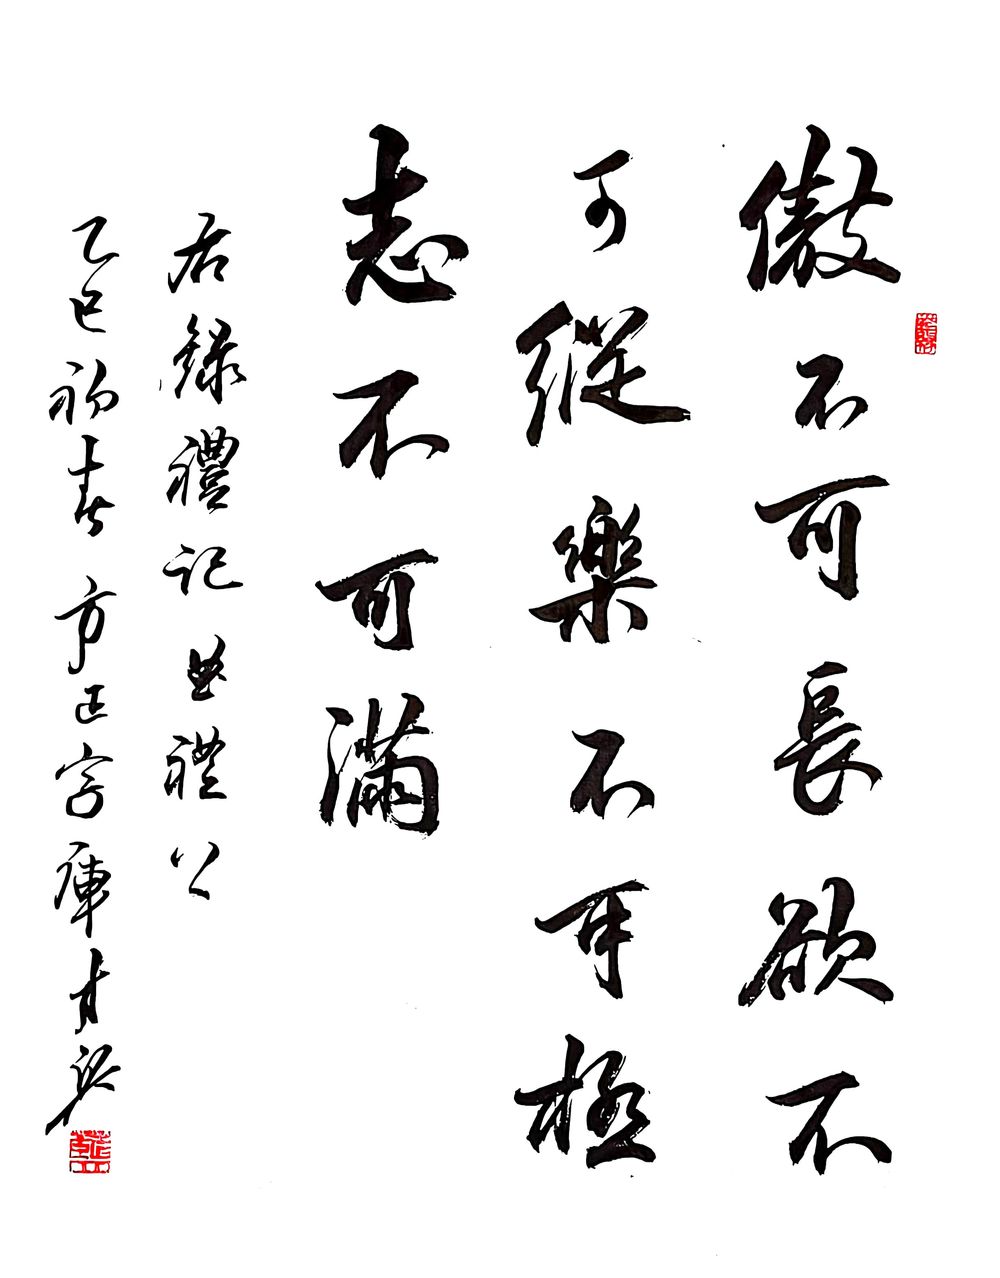 傲不可長欲不
可縱樂不可極
志不可滿
右錄禮記曲禮上
乙巳初春方正字庫